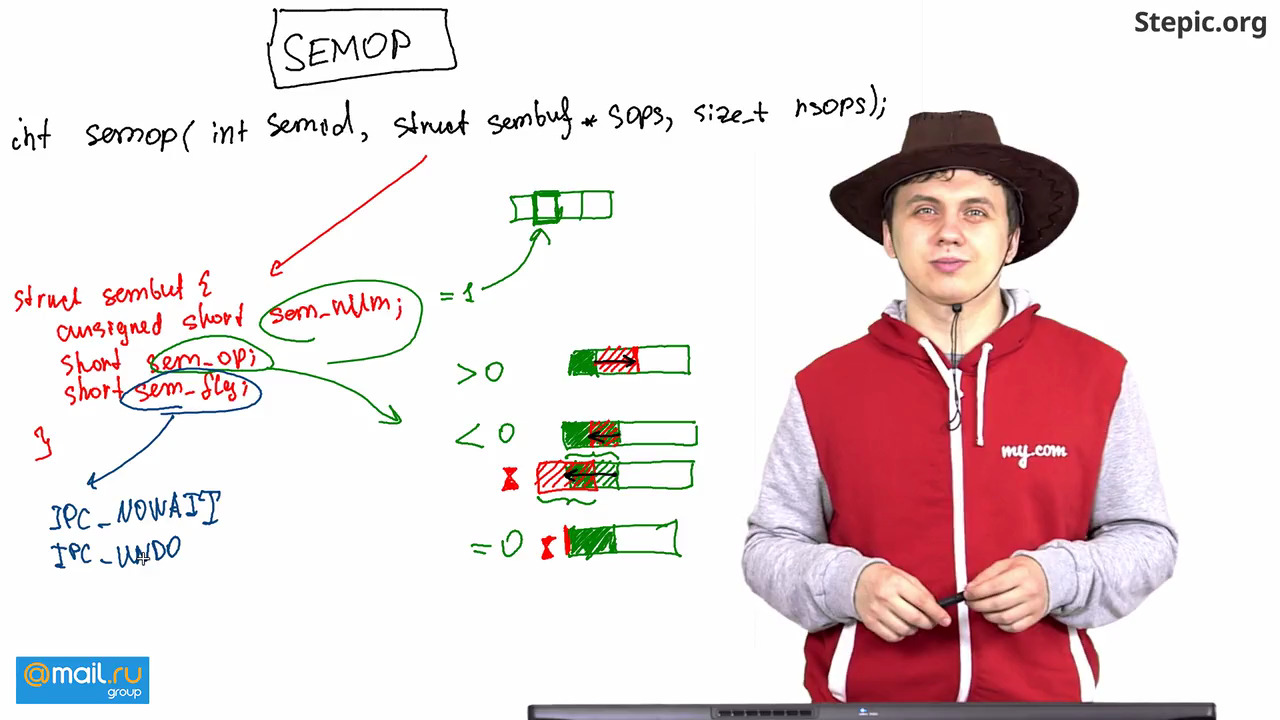 Stepic.org
SEMOP
int semop( int semid, struct sembuf * sops, size_t nsops);
struct sembuf {
unsigned short sem_num;
= 1
short sem_op;
> 0
short sem_flg;
< 0
}
= 0
IPC_NOWAIT
IPC_UNDO
my.com
@mail.ru
group